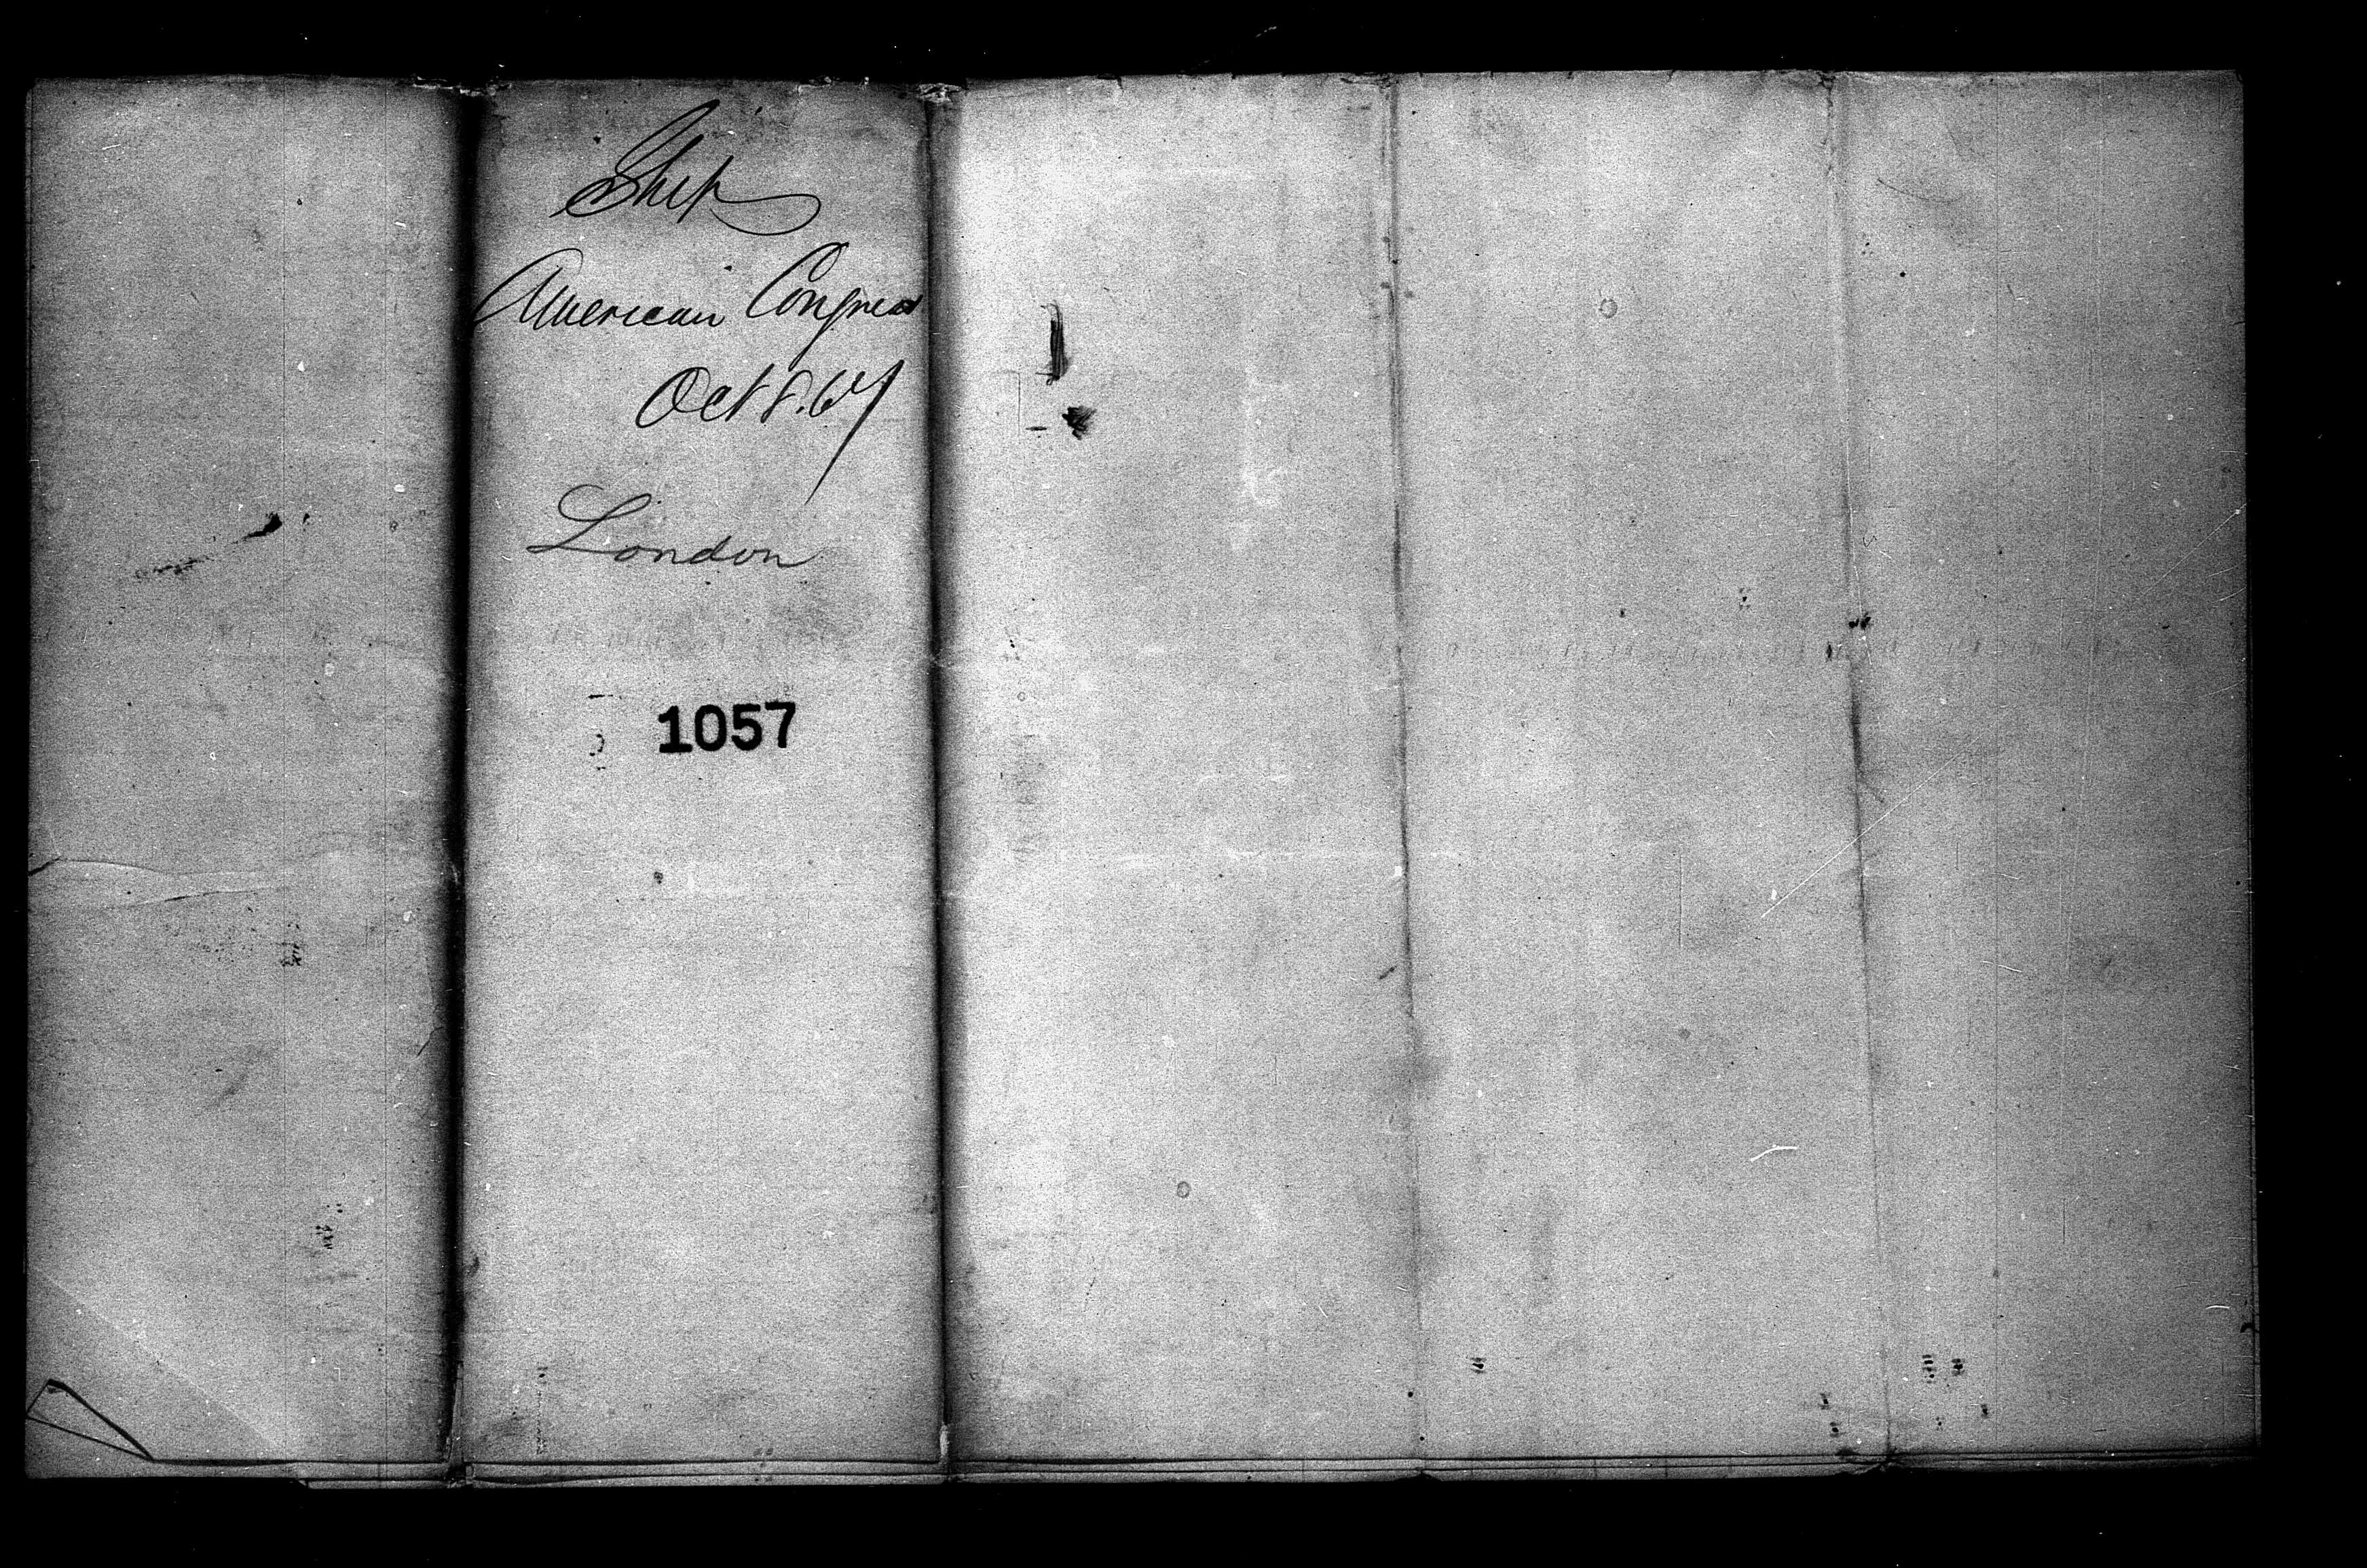 Ship
American Congress
Oct 8. 67
London
1057